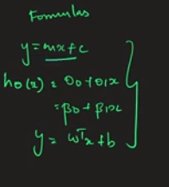 Formulas
y = mx + c
hθ(x) = θ0 + θ1x
= β0 + β1x
y = wᵀx + b